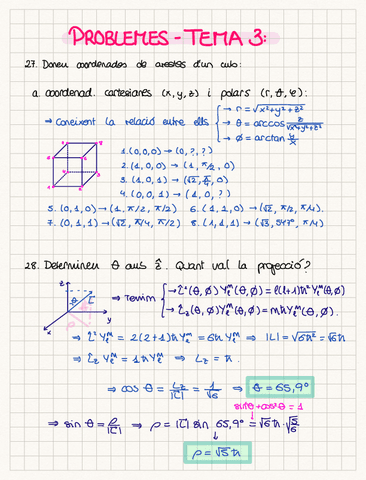 PROBLEMES - TEMA 3:
27. Doneu coordenades de arestes d'un cub:
a. coordenad. cartesianes (x, y, z) i polars (r, θ, φ):
⇒ Coneixent la relació entre ells { → r = √x²+y²+z²
→ θ = arccos z/√x²+y²+z²
→ ϕ = arctan y/x
1. (0,0,0) → (0, ?, ?)
2. (1,0,0) → (1, π/2, 0)
3. (1,0,1) → (√2, π/4, 0)
4. (0,0,1) → (1, 0, ?)
5. (0,1,0) → (1, π/2, π/2) 6. (1,1,0) → (√2, π/2, π/4).
7. (0,1,1) → (√2, π/4, π/2) 8. (1,1,1) → (√3, 54'7°, π/4)
28. Determineu θ amb ẑ. Quant val la projecció?
z
θ L
ρ
x y
⇒ Tenim { → L̂²(θ,ϕ) Yₗᵐ(θ,ϕ) = l(l+1)ħ² Yₗᵐ(θ,ϕ)
→ L̂z(θ,ϕ) Yₗᵐ(θ,ϕ) = mħ Yₗᵐ(θ,ϕ).
⇒ L̂² Yₗᵐ = 2(2+1)ħ² Yₗᵐ = 6ħ Yₗᵐ ⇒ |L| = √6ħ² = √6ħ
⇒ L̂z Yₗᵐ = 1ħ Yₗᵐ ⇒ Lz = ħ.
⇒ cos θ = Lz/|L| = 1/√6 ⇒ θ = 65,9°
sin²θ + cos²θ = 1
⇒ sin θ = ρ/|L| ⇒ ρ = |L| sin 65,9° = √6ħ · √5/6
ρ = √5ħ